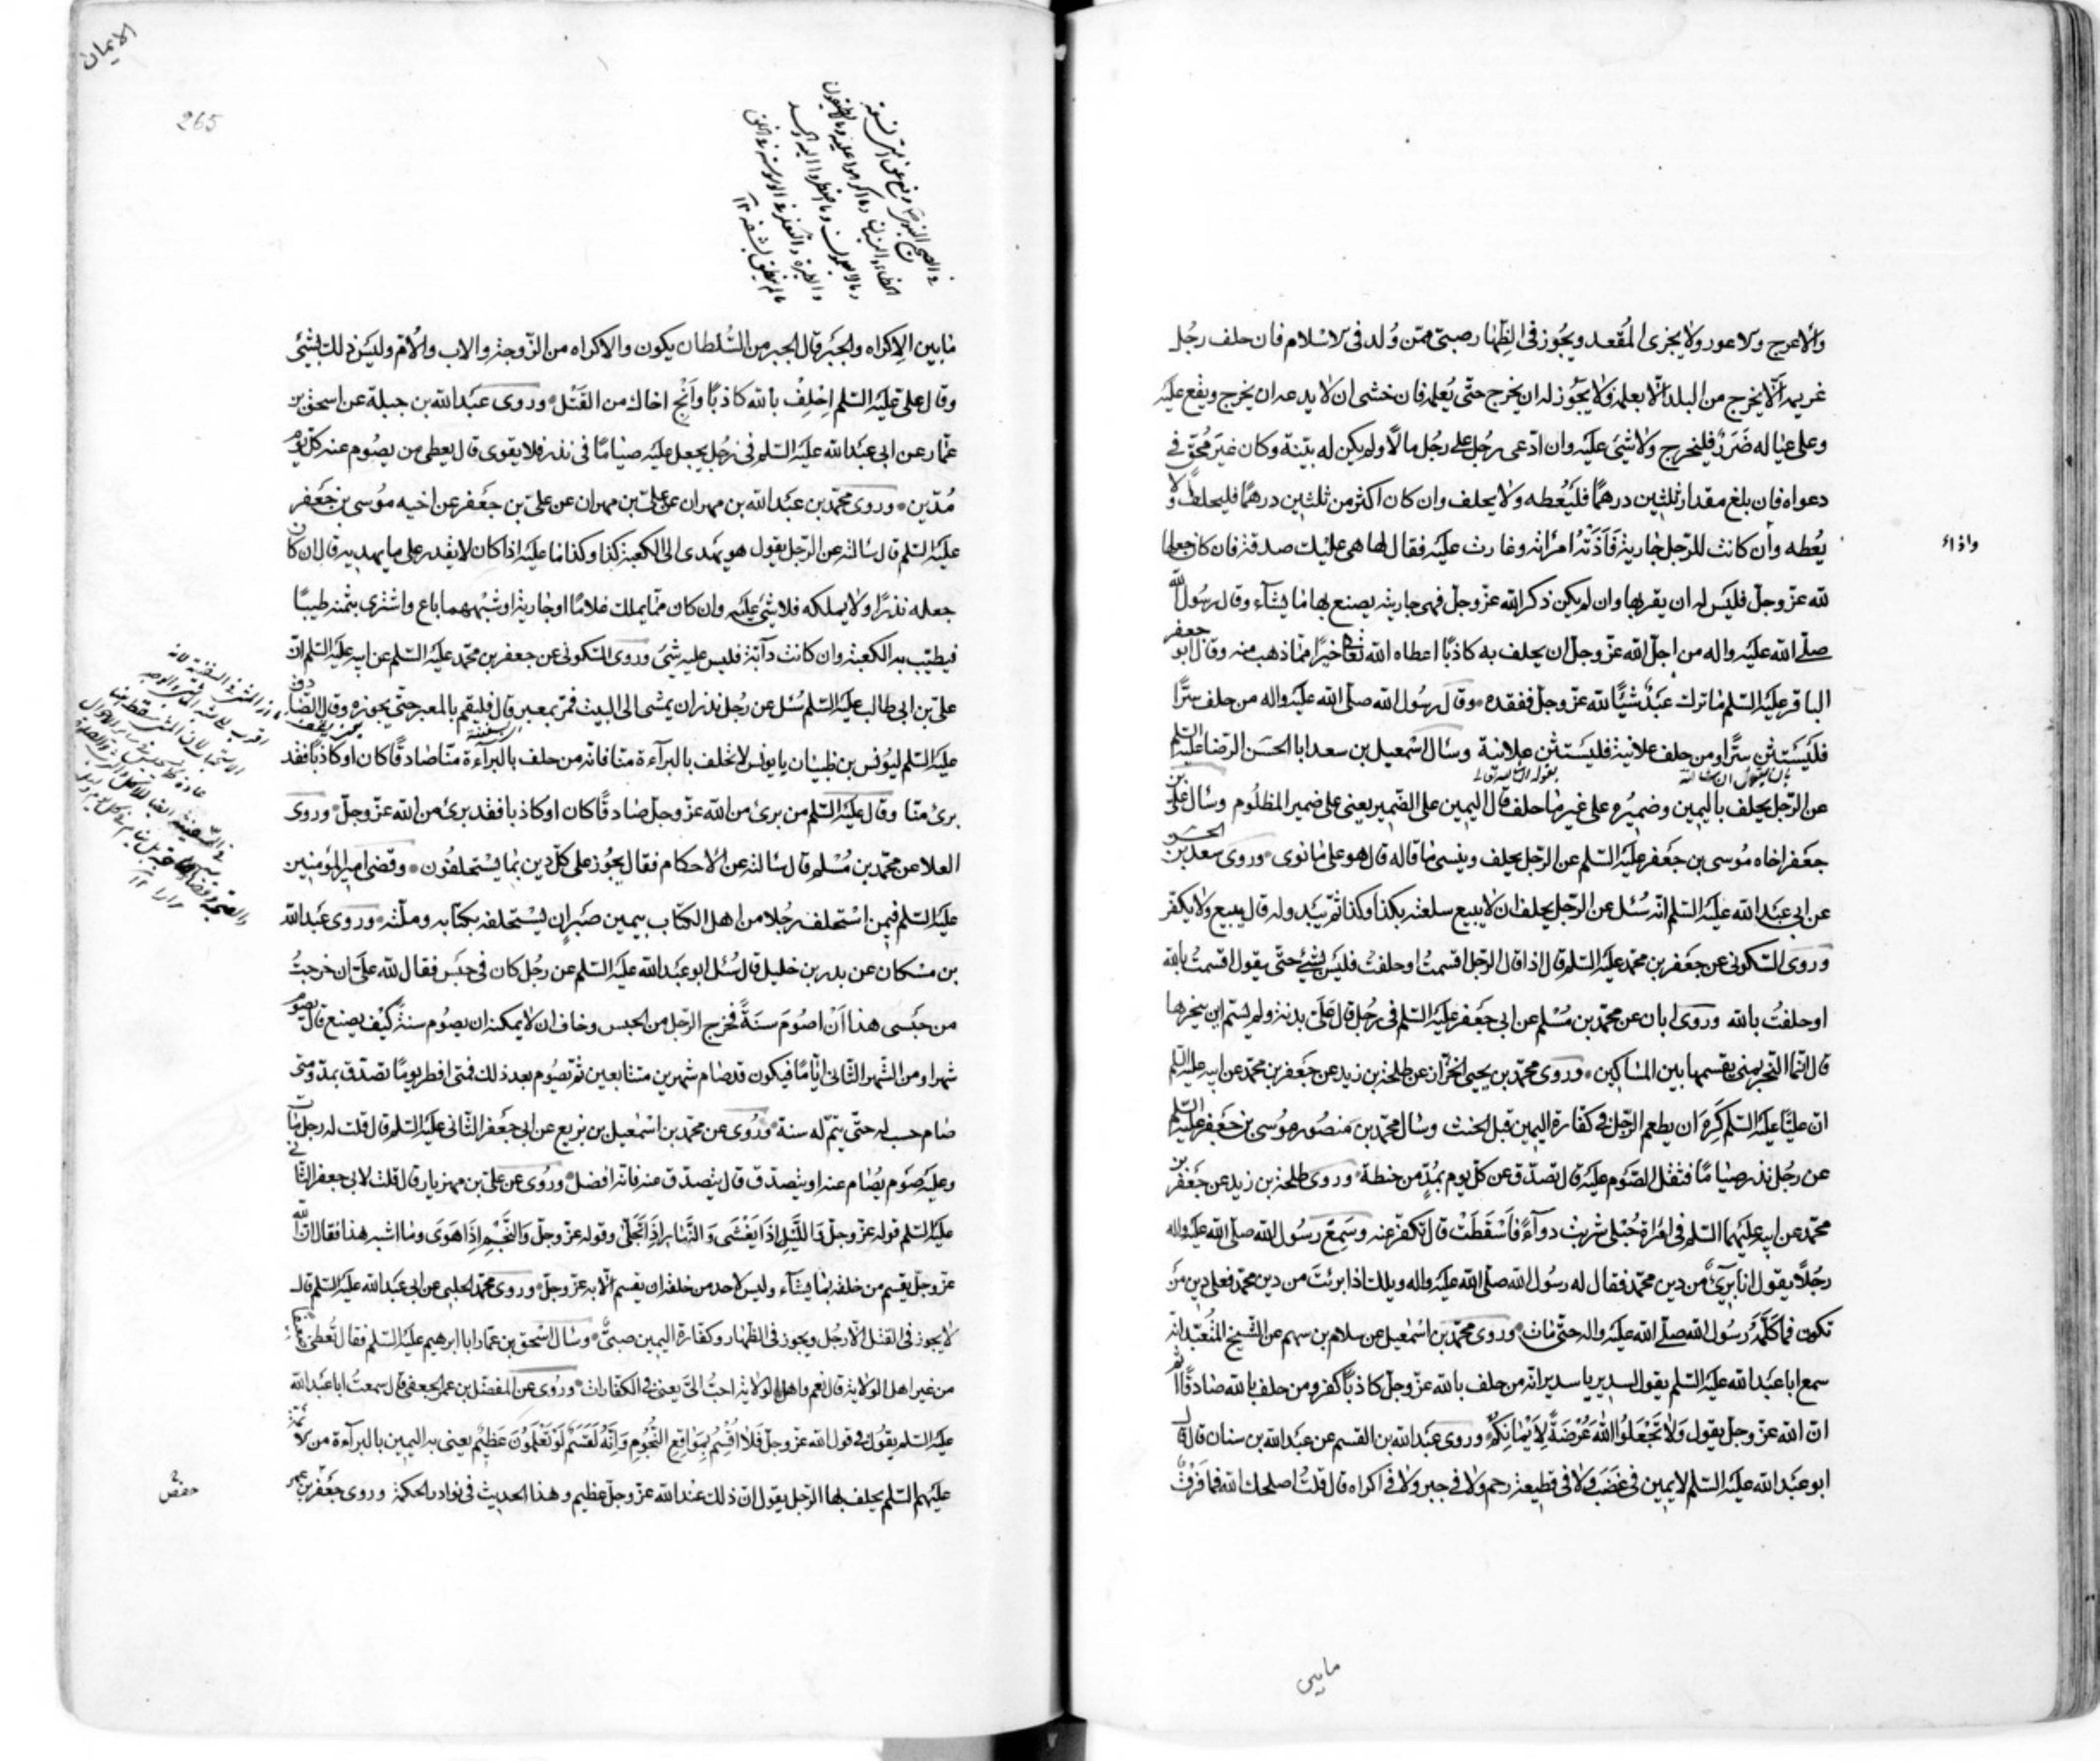 والاعرج والاعور ولا يجزى المقعد ويجوز فى الظهار صبى ممن ولد فى الاسلام فان حلف رجل
غريمه الا يخرج من البلد الا بعلمه ولا يجوز له ان يخرج حتى يعلمه فان خشى ان لا يدعه ان يخرج ويقع عليه
وعلى عياله ضرر فليخرج ولا شىء عليه وان ادعى رجل على رجل مالا ولم يكن له بينة وكان غير محق فى
دعواه فان بلغ مقدار ثلثين درهما فليعطه ولا يحلف وان كان اكثر من ثلثين درهما فليحلف ولا
يعطه وان كانت للرجل جارية فآذته امراته وغارت عليه فقال لها هى عليك صدقة فان كان جعلها
واذاء
لله عز وجل فليس له ان يقربها وان لم يكن ذكر الله عز وجل فهى جاريته يصنع بها ما يشاء وقال رسول الله
صلى الله عليه واله من اجل الله عز وجل ان يحلف به كاذبا اعطاه الله تعالى خيرا مما ذهب منه وقال ابو جعفر
الباقر عليه السلم ما ترك عبد شيئا لله عز وجل ففقده وقال رسول الله صلى الله عليه واله من حلف سرا
فليستثن سرا ومن حلف علانية فليستثن علانية وسال اسمعيل بن سعد ابا الحسن الرضا عليه السلم
عن الرجل يحلف باليمين وضميره على غير ما حلف قال اليمين على الضمير يعنى على ضمير المظلوم وسال على بن
جعفر اخاه موسى بن جعفر عليه السلم عن الرجل يحلف وينسى ما قاله قال هو على ما نوى وروى سعد بن الحسن
عن ابى عبد الله عليه السلم انه سئل عن الرجل يحلف ان لا يبيع سلعته بكذا وكذا ثم يبدو له قال يبيع ولا يكفر
وروى السكونى عن جعفر بن محمد عليه السلم قال اذا قال الرجل اقسمت او حلفت فليس بشىء حتى يقول اقسمت بالله
او حلفت بالله وروى ابان عن محمد بن مسلم عن ابى جعفر عليه السلم فى رجل قال على بدنة ولم يسم اين ينحرها
قال انما النحر بمنى يقسمها بين المساكين وروى محمد بن يحيى الخزاز عن طلحة بن زيد عن جعفر بن محمد عن ابيه عليه السلم
ان عليا عليه السلم كره ان يطعم الرجل فى كفارة اليمين قبل الحنث وسال محمد بن منصور موسى بن جعفر عليه السلم
عن رجل نذر صياما فثقل الصوم عليه قال تصدق عن كل يوم بمد من حنطة وروى طلحة بن زيد عن جعفر بن
محمد عن ابيه عليهما السلم فى امراة حبلى شربت دواء فاسقطت قال تكفر عنه وسمع رسول الله صلى الله عليه واله
رجلا يقول انا برئ من دين محمد فقال له رسول الله صلى الله عليه واله ويلك اذا برئت من دين محمد فعلى دين من
تكون فما كلمه رسول الله صلى الله عليه واله حتى مات وروى محمد بن اسمعيل عن سلام بن سهم عن الشيخ المتعبد انه
سمع ابا عبد الله عليه السلم يقول لسدير يا سدير انه من حلف بالله عز وجل كاذبا كفر ومن حلف بالله صادقا اثم
ان الله عز وجل يقول ولا تجعلوا الله عرضة لايمانكم وروى عبد الله بن القسم عن عبد الله بن سنان قال قال
ابو عبد الله عليه السلم لا يمين فى غضب ولا فى قطيعة رحم ولا فى جبر ولا فى اكراه قال قلت اصلحك الله فما فرق
مابين
الايمان
265
ما بين الاكراه والجبر قال الجبر من السلطان يكون والاكراه من الزوجة والاب والام وليس ذلك بشئ
وقال على عليه السلم احلف بالله كاذبا وانج اخاك من القتل وروى عبد الله بن جبلة عن اسحق بن
عمار عن ابى عبد الله عليه السلم فى رجل يجعل عليه صياما فى نذر فلا يقوى قال يعطى من يصوم عنه كل يوم
مدين وروى محمد بن عبد الله بن مهران عن على بن مهران عن على بن جعفر عن اخيه موسى بن جعفر
عليه السلم قال سالته عن الرجل يقول هو يهدى الى الكعبة كذا وكذا ما عليه اذا كان لا يقدر على ما يهديه قال ان كان
جعله نذرا ولا يملكه فلا شئ عليه وان كان مما يملك غلاما او جارية او شبههما باع واشترى بثمنه طيبا
فيطيب به الكعبة وان كانت دآبة فليس عليه شئ وروى السكونى عن جعفر بن محمد عليه السلم عن ابيه عليه السلم ان
على بن ابى طالب عليه السلم سئل عن رجل نذر ان يمشى الى البيت فمر بمعبر قال فليقم بالمعبر حتى يجوزه وقال الصادق
عليه السلم ليونس بن ظبيان يا يونس لا تحلف بالبرآءة منا فانه من حلف بالبرآءة منا صادقا كان او كاذبا فقد
برئ منا وقال عليه السلم من برئ من الله عز وجل صادقا كان او كاذبا فقد برئ من الله عز وجل وروى
العلا عن محمد بن مسلم قال سالته عن الاحكام فقال يجوز على كل دين بما يستحلفون وقضى امير المؤمنين
عليه السلم فيمن استحلف رجلا من اهل الكتاب بيمين صبر ان يستحلفه بكتابه وملته وروى عبد الله
بن مسكان عن بدر بن خليل قال سئل ابو عبد الله عليه السلم عن رجل كان فى حبس فقال لله على ان خرجت
من حبسى هذا ان اصوم سنة فخرج الرجل من الحبس وخاف ان لا يمكنه ان يصوم سنة كيف يصنع قال يصوم
شهرا ومن الشهر الثانى اياما فيكون قد صام شهرين متتابعين ثم يصوم بعد ذلك فمتى افطر يوما تصدق بمد ومتى
صام حسب له حتى يتم له سنة وروى عن محمد بن اسمعيل بن بزيع عن ابى جعفر الثانى عليه السلم قال قلت له رجل مات
وعليه صوم يصام عنه او يتصدق قال يتصدق عنه فانه افضل وروى عن على بن مهزيار قال قلت لابى جعفر الثانى
عليه السلم قوله عز وجل والليل اذا يغشى والنهار اذا تجلى وقوله عز وجل والنجم اذا هوى وما اشبه هذا فقال ان الله
عز وجل يقسم من خلقه بما يشآء وليس لاحد من خلقه ان يقسم الا به عز وجل وروى محمد الحلبى عن ابى عبد الله عليه السلم قال
لا يجوز فى القتل الا رجل ويجوز فى الظهار وكفارة اليمين صبى وسال اسحق بن عمار ابا ابرهيم عليه السلم فقال تعطى ضعفاء
من غير اهل الولاية قال نعم واهل الولاية احب الى يعنى فى الكفارات وروى عن المفضل بن عمر الجعفى قال سمعت ابا عبد الله
عليه السلم يقول فى قول الله عز وجل فلا اقسم بمواقع النجوم وانه لقسم لو تعلمون عظيم يعنى به اليمين بالبرآءة من الائمة
عليهم السلم يحلف بها الرجل يقول ان ذلك عند الله عز وجل عظيم وهذا الحديث فى نوادر الحكمة وروى جعفر بن عمر
حفص